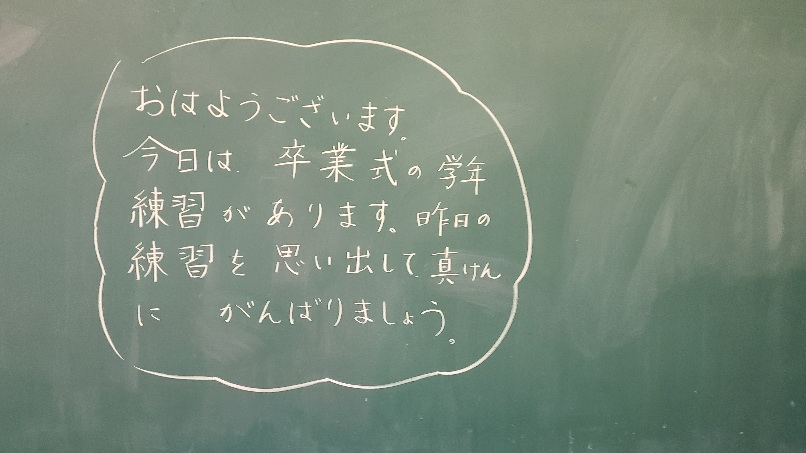 おはようございます。
今日は、卒業式の学年
練習があります。昨日の
練習を思い出して、真けん
に がんばりましょう。